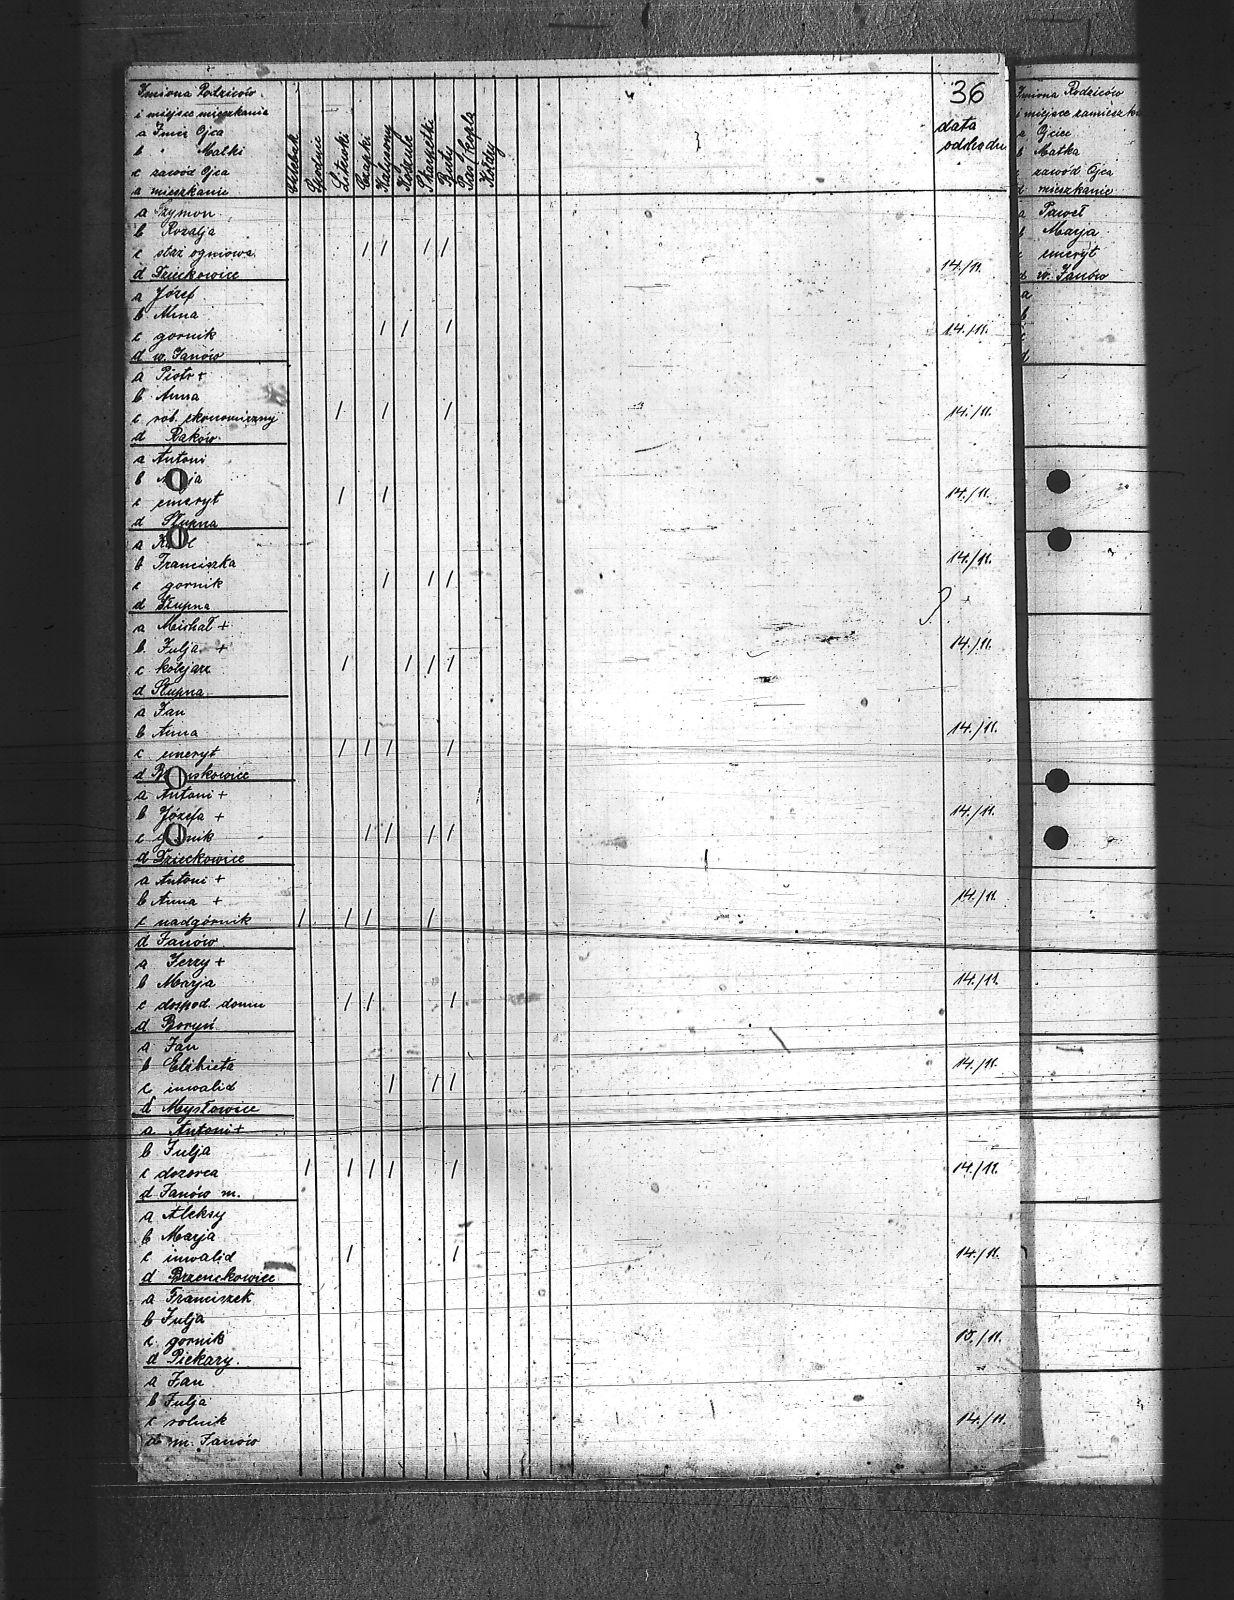 Imiona Rodziców
i miejsce mieszkania
a Imię Ojca
b " Matki
c zawód Ojca
a mieszkanie
Spodnie
Litewki
Czapki
Kalesony
Koszule
Skarpetki
Buty
Pas
Kołdry
36
data
a Szymon
b Rozalja
c staż ogniowa
d Dzieckowice
14./11.
a Józef
b Alma
c gornik
d w. Janów
14./11.
a Piotr +
b Anna
c rob. ekonomiczny
d Raków
14./11.
a Antoni
b
c emeryt
d Słupna
14./11.
a
b Franciszka
c gornik
d Słupna
14./11.
a Michał +
b Julja +
c kolejarz
d Słupna
14./11.
a Jan
b Anna
c emeryt
d
14./11.
a Antoni +
b Józefa +
c gornik
d Dzieckowice
14./11.
a Antoni +
b Anna +
c nadgórnik
d Janów
14./11.
a Jerzy +
b Marja
c dospod. domu
d Boryń
14./11.
a Jan
b Elżbieta
c inwalid
d Mysłowice
14./11.
a Antoni +
b Julja
c dozorca
d Janów m.
14./11.
a Aleksy
b Marja
c inwalid
d Brzenckowice
14./11.
a Franciszek
b Julja
c gornik
d Piekary.
15./11.
a Jan
b Julja
c rolnik
d m. Janów
14./11.
Imiona Rodziców
i miejsce zamieszk
a Ojciec
b Matka
c zawód Ojca
d mieszkanie
a Paweł
b Marja
c emeryt
d w. Janów
a
b
c
d